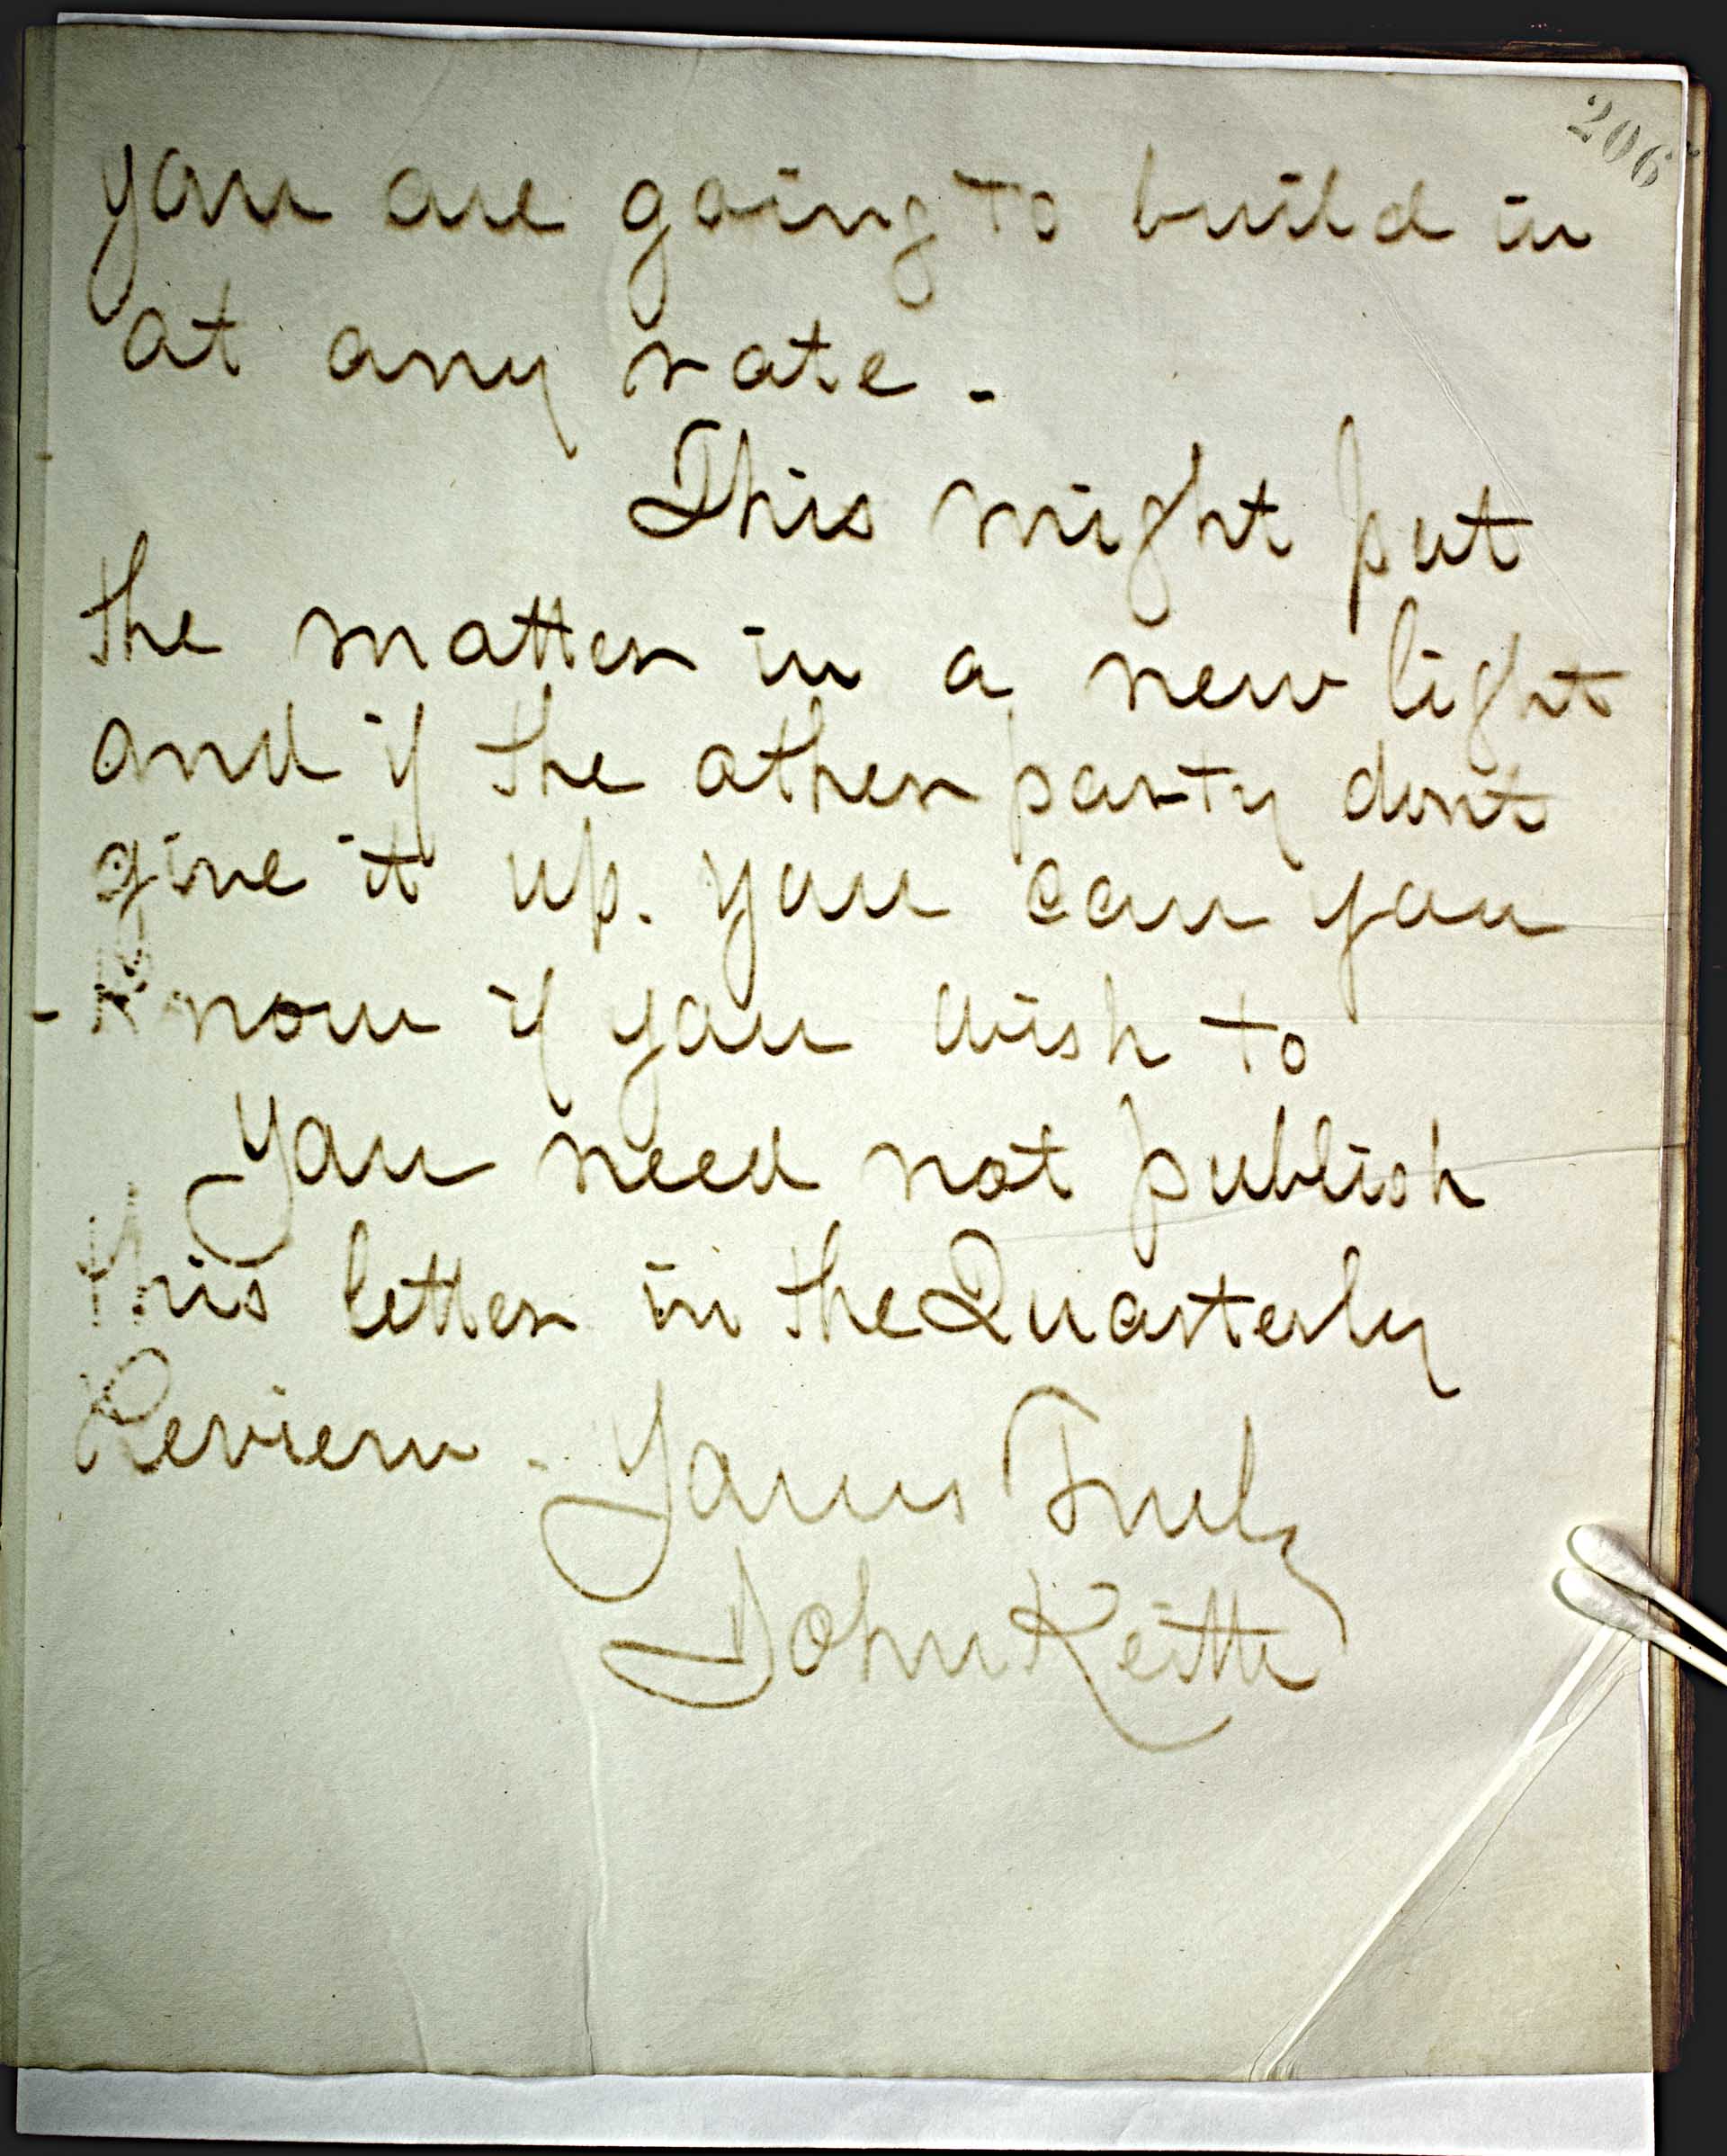 206
you are going to build in
at any rate -
This might put
the matter in a new light
and if the other party dont
give it up. you can you
know if you wish to
You need not publish
this letter in the Quarterly
Review - Yours Truly
John Keith